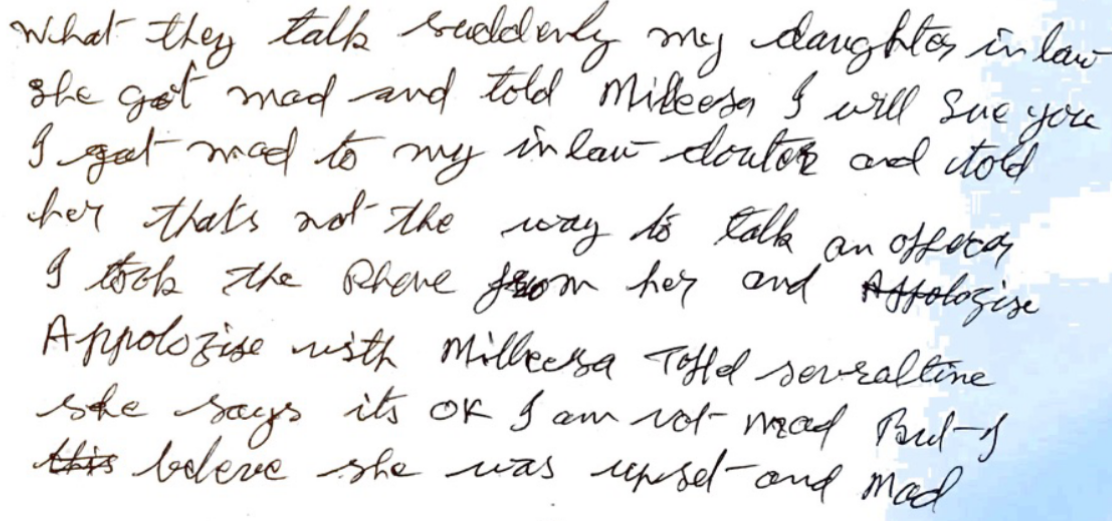 What they talk suddenly my daughter in law
she got mad and told Milleesa I will sue you
I got mad to my inlaw doutor and told
her thats not the way to talk an offecer
I took the Phone from her and Appologise
Appologise with Milleesa Told severaltime
she says its OK I am not mad But I
this beleve she was upset and mad